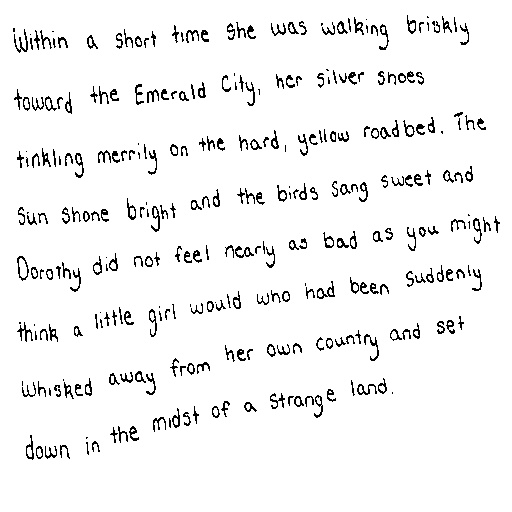 Within a short time she was walking briskly
toward the Emerald City, her silver shoes
tinkling merrily on the hard, yellow roadbed. The
sun shone bright and the birds sang sweet and
Dorothy did not feel nearly as bad as you might
think a little girl would who had been suddenly
whisked away from her own country and set
down in the midst of a strange land.